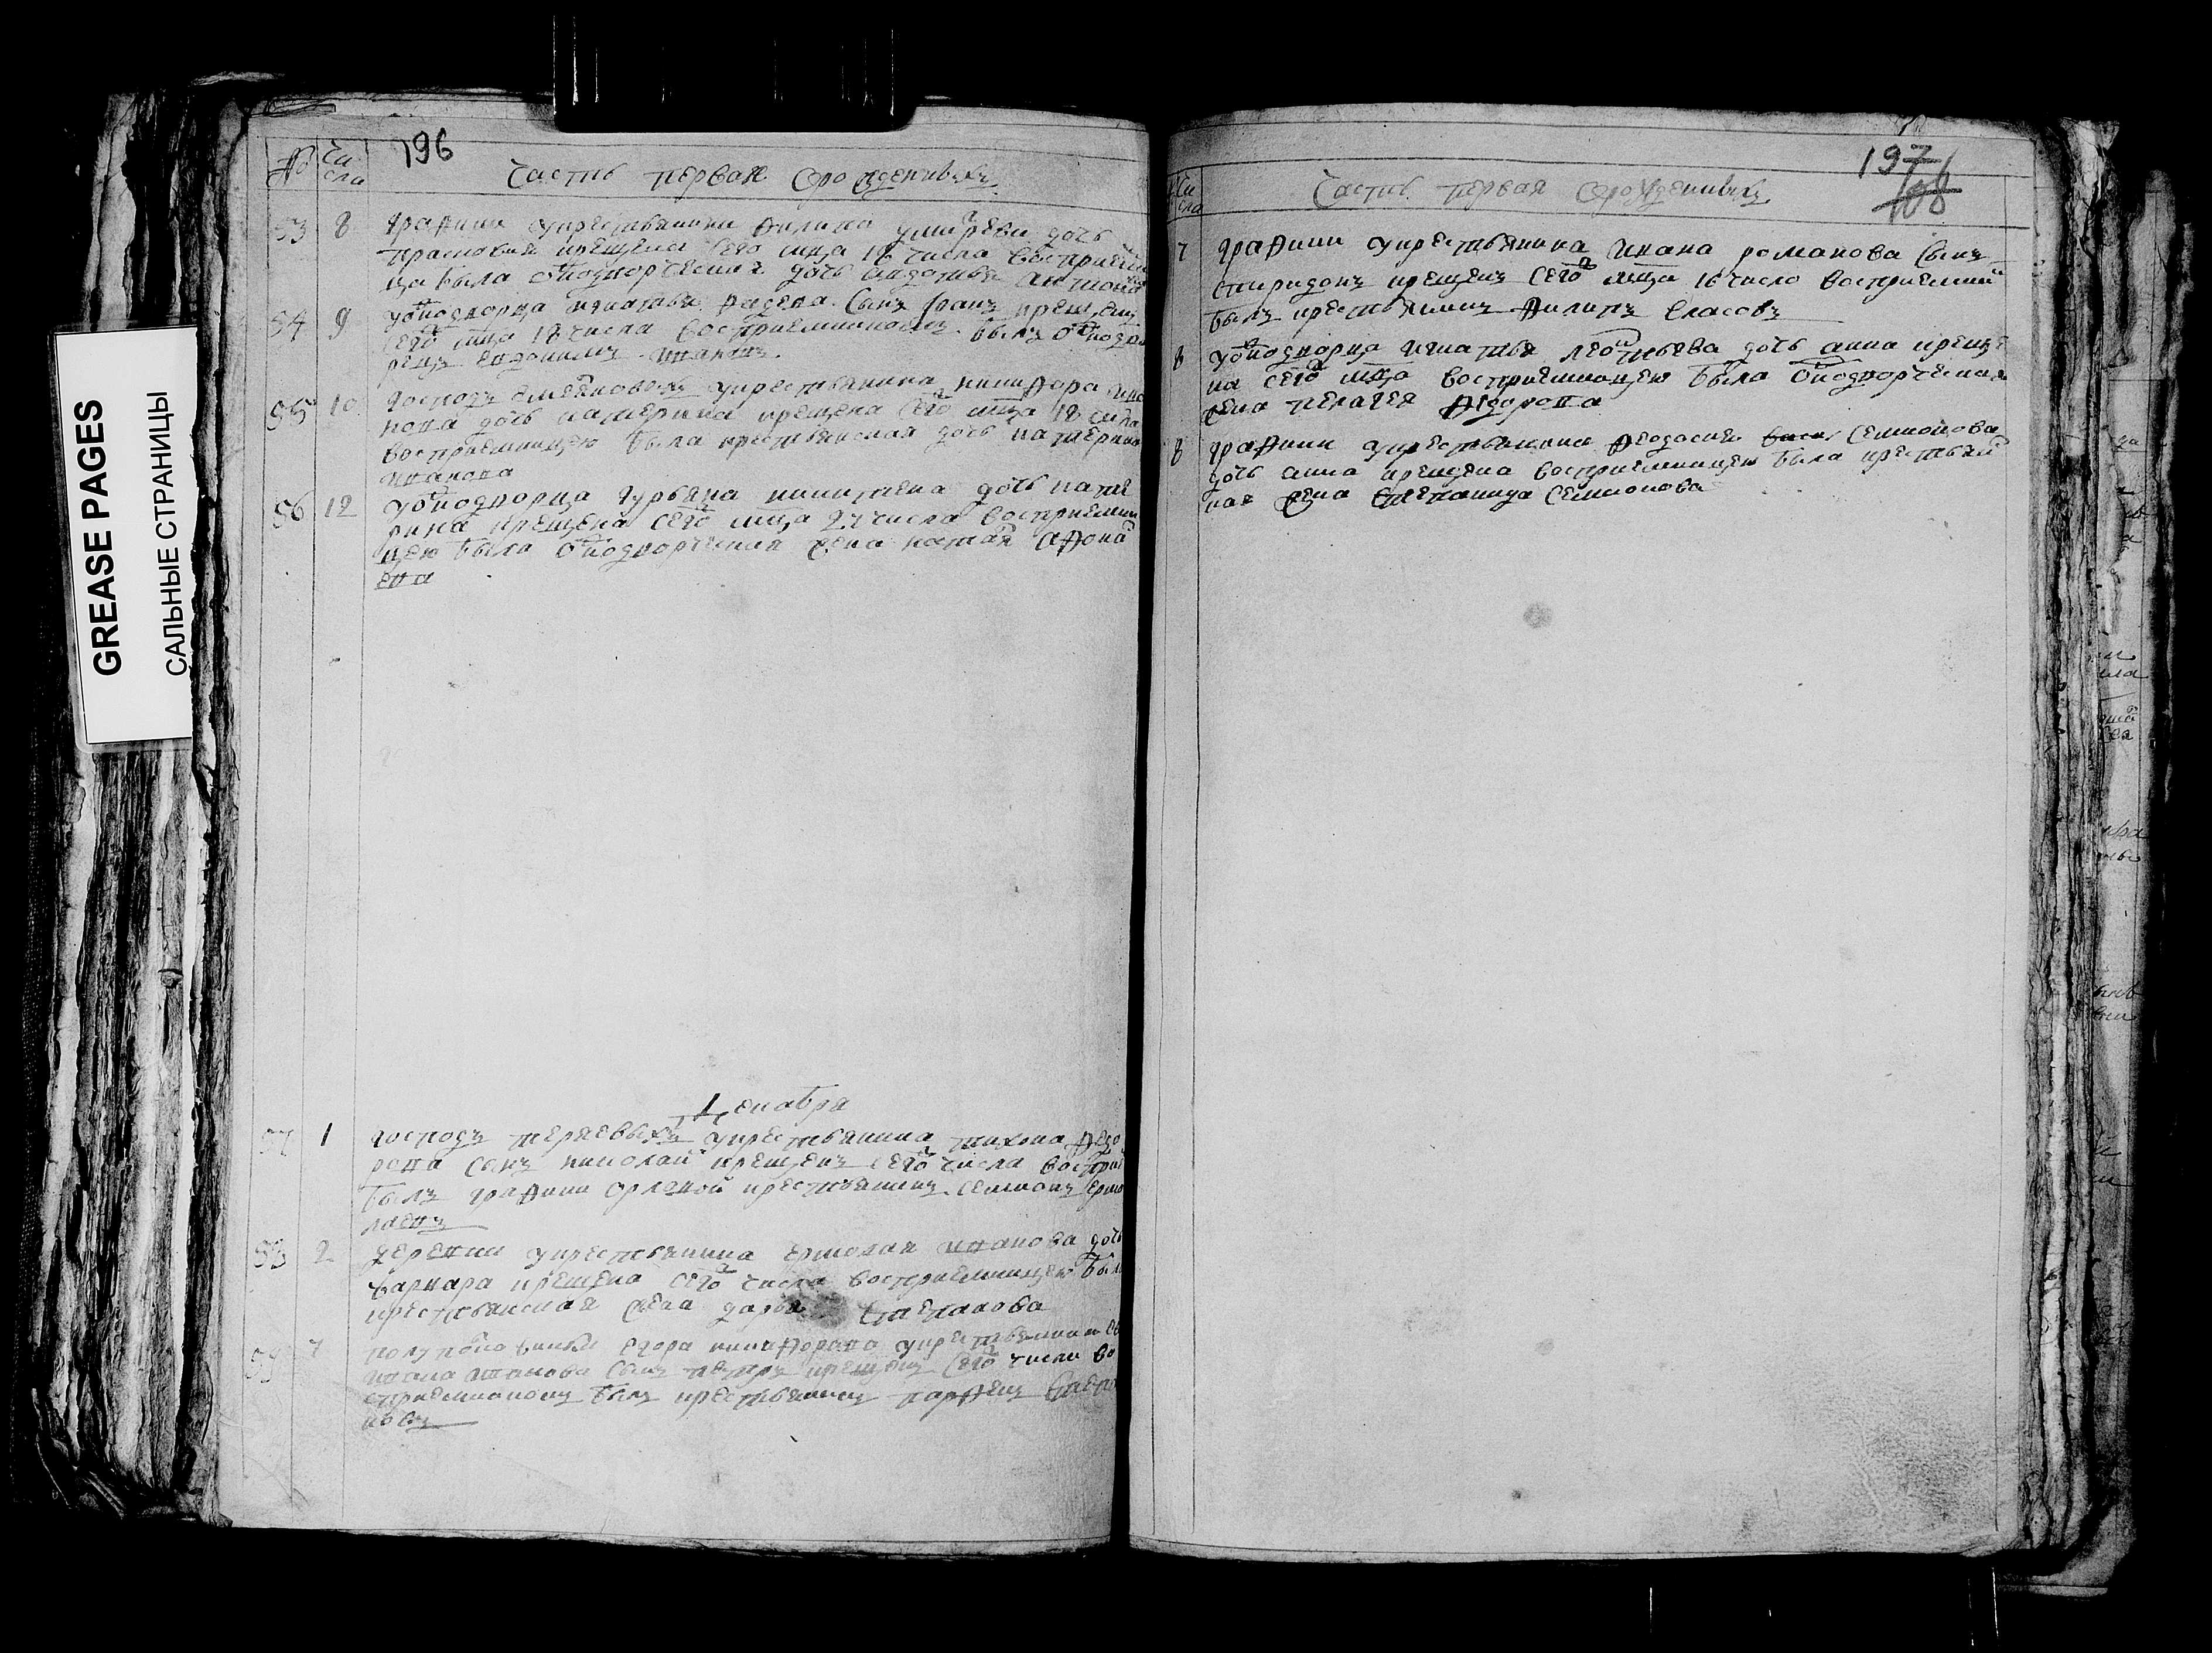 GREASE PAGES
САЛЬНЫЕ СТРАНИЦЫ
№ Чи
сла
196
Часть первая ѡрожденныхъ
53 8 графини укрестьянина филипа дочь
прасковия крещена сего мца 18 числа восприемни
ца была ѡднодворческая дочь авдотья антонова
54 9 уоднодворца сынъ крещенъ
сего мца 18 числа восприемникомъ былъ однодво
рецъ евдокимъ
55 10 господъ укрестьянина никифора
нова дочь катерина крещена сего мца 18 числа
восприемницею была крестьянская дочь катерина
иванова
56 12 уоднодворца гурьяна никитаева дочь кате
рина крещена сего мца 27 числа восприемни
цею была однодворческая жена афона
ева
Декабря
57 1 господъ теряевыхъ укрестьянина тихона федо
рова сынъ николай крещенъ сего числа восприем
былъ графини орловой крестьянинъ семионъ ермо
лаевъ
58 2 деревни укрестьянина ермолая иванова дочь
варвара крещена сего числа восприемницею была
крестьянская жена дарья степанова
59 7 егора никифорова укрестьянина
иванова сынъ петръ крещенъ сего числа во
сприемникомъ былъ крестьянинъ парфенъ
новъ
Чи
сла
197
Часть первая ѡрожденныхъ
7 графини укрестьянина ивана романова сынъ
спиридонъ крещенъ сего мца 16 число восприемник
былъ крестьянинъ филипъ власовъ
8 уоднодворца игнатья леонтьева дочь анна креще
на сего мца восприемницею была однодворческая
жена пелагея федорова
8 графини укрестьянина феодосия семионова
дочь анна крещена восприемницею была крестьянс
кая жена степанида семионова